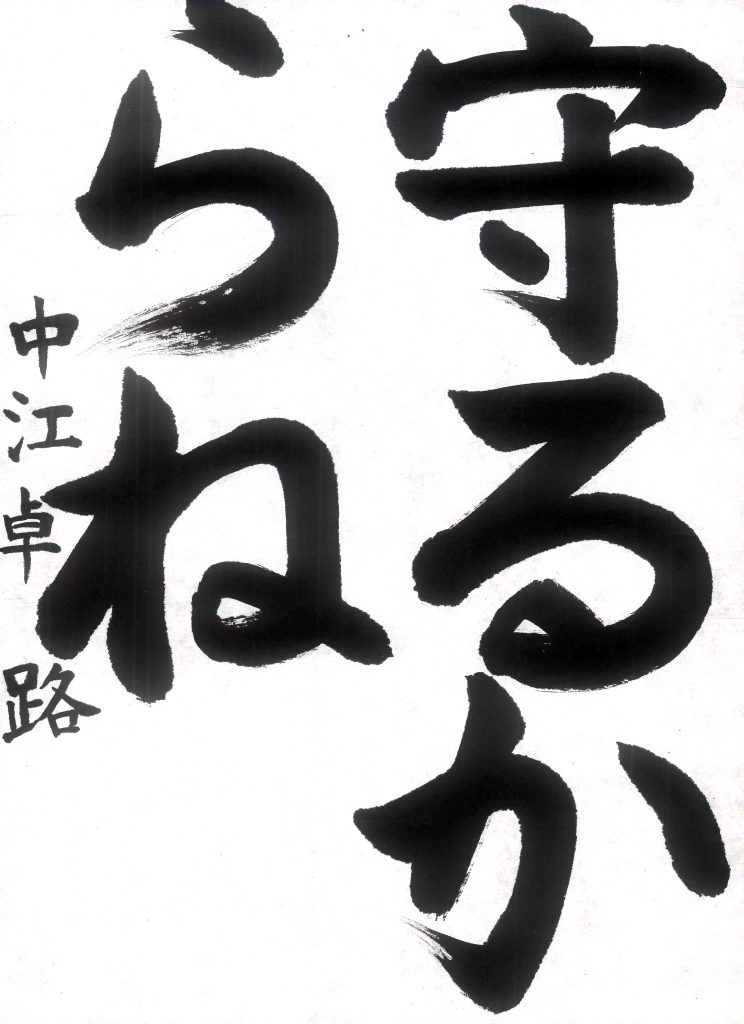 守るか
らね
中江卓路